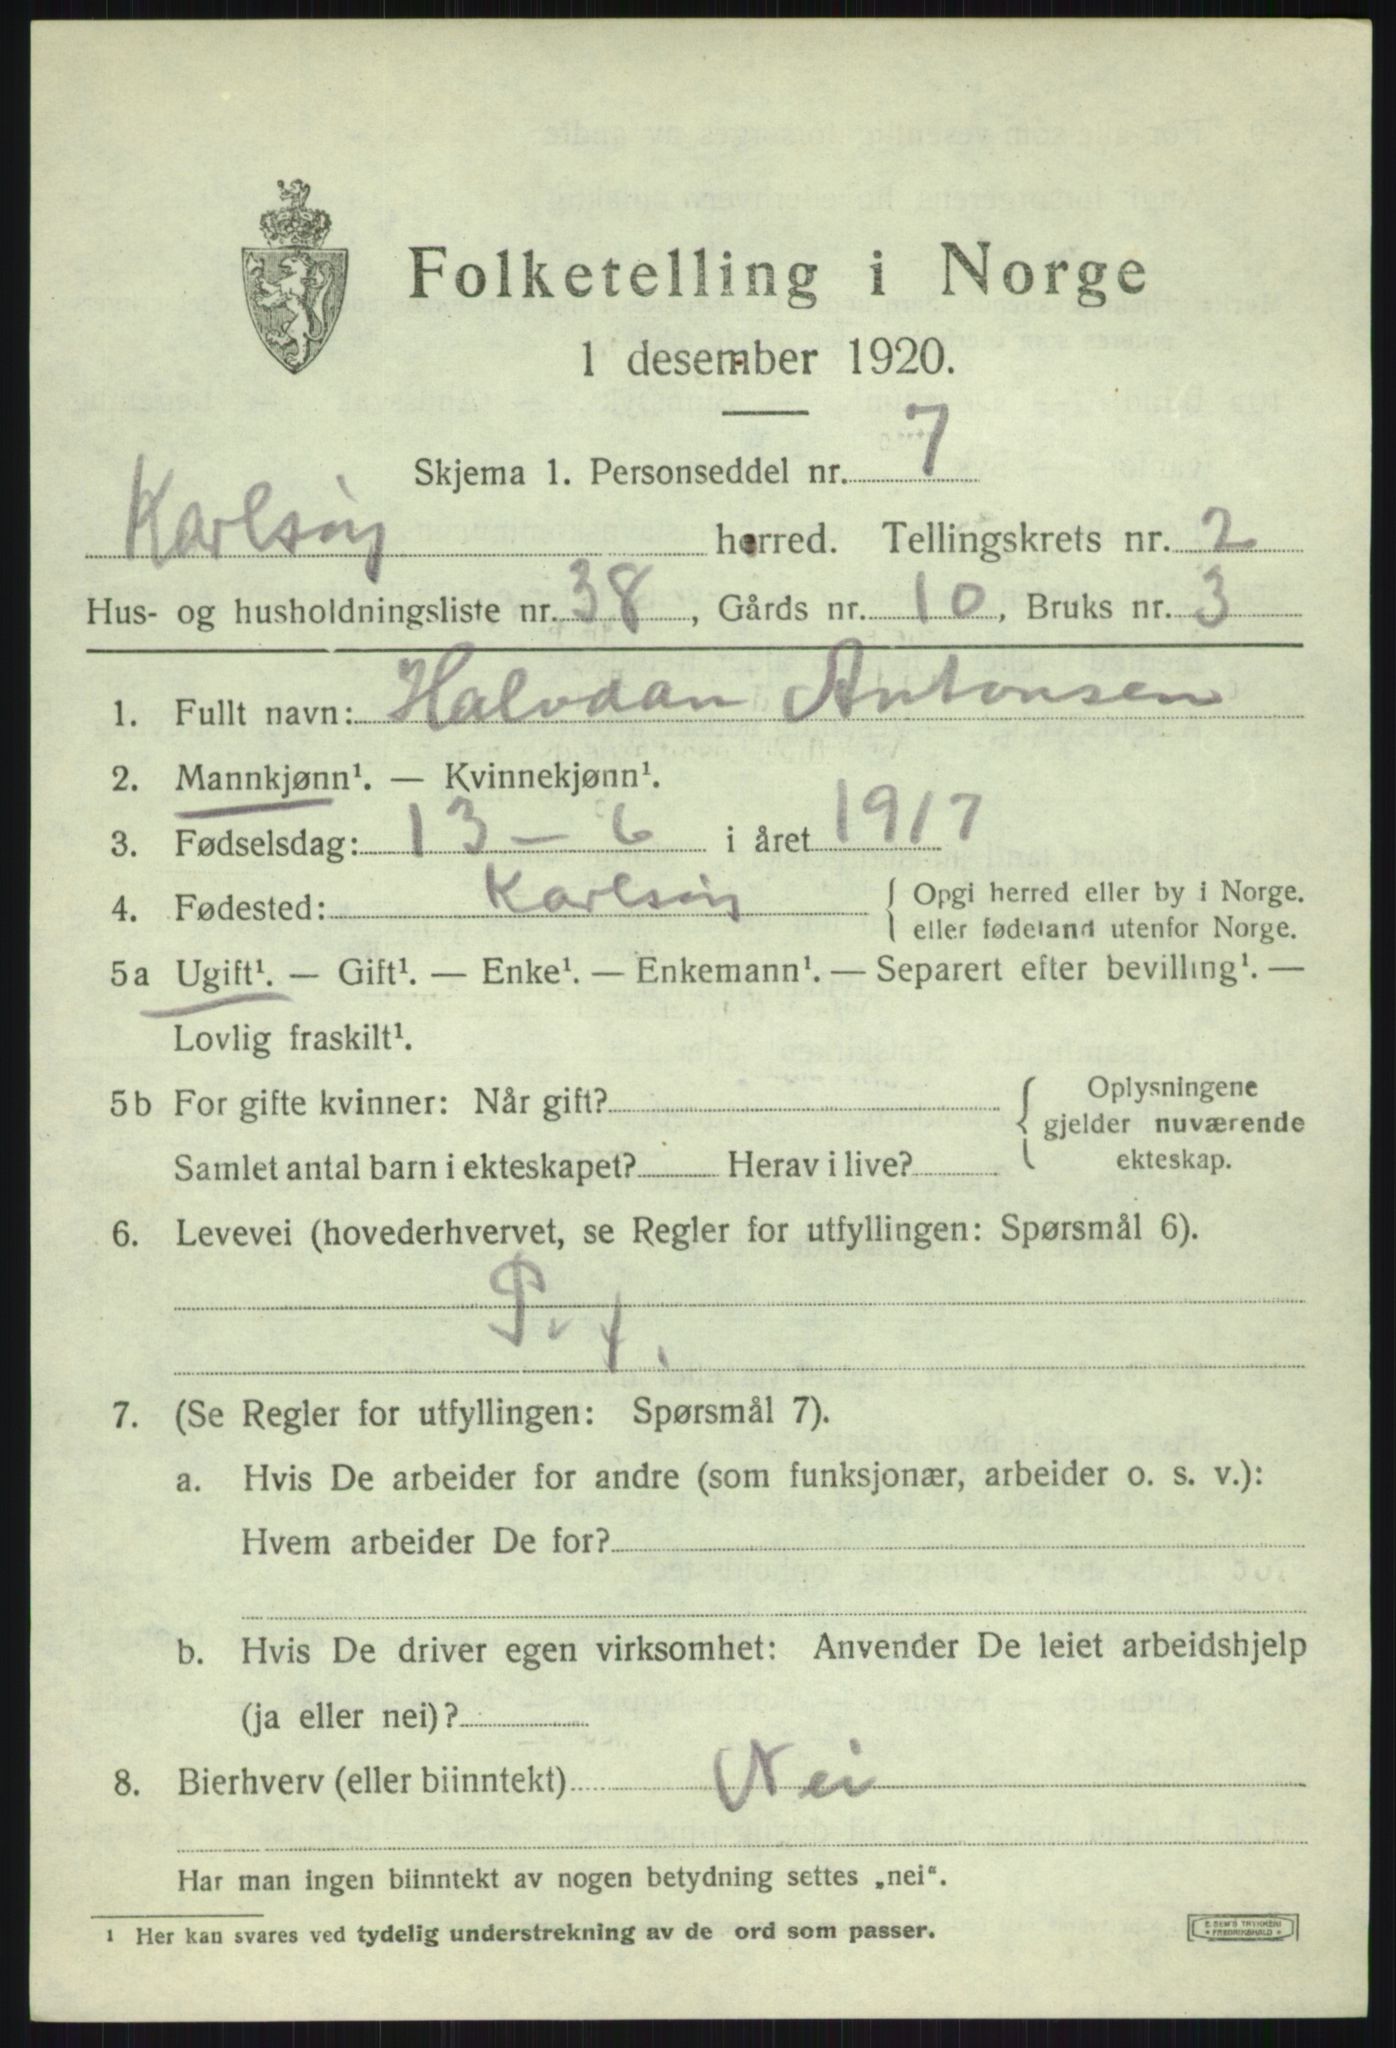 Folketelling i Norge
1 desember 1920.
Skjema 1. Personseddel nr. 7
Karlsöy herred. Tellingskrets nr. 2
Hus- og husholdningsliste nr. 38, Gårds nr. 10, Bruks nr. 3
1. Fullt navn: Halvdan Antonsen
2. Mannkjønn¹. — Kvinnekjønn¹.
3. Fødselsdag: 13 - 6 i året 1917
4. Fødested: Karlsöy { Opgi herred eller by i Norge.
eller fødeland utenfor Norge.
5a Ugift¹. — Gift¹. — Enke¹. — Enkemann¹. — Separert efter bevilling¹. —
Lovlig fraskilt¹.
5b For gifte kvinner: Når gift? { Oplysningene
gjelder nuværende
Samlet antal barn i ekteskapet? Herav i live? ekteskap.
6. Levevei (hovederhvervet, se Regler for utfyllingen: Spørsmål 6).
P. f.
7. (Se Regler for utfyllingen: Spørsmål 7).
a. Hvis De arbeider for andre (som funksjonær, arbeider o. s. v.):
Hvem arbeider De for?
b. Hvis De driver egen virksomhet: Anvender De leiet arbeidshjelp
(ja eller nei)?
8. Bierhverv (eller biinntekt) Nei
Har man ingen biinntekt av nogen betydning settes „nei“.
1 Her kan svares ved tydelig understrekning av de ord som passer.
E. SEM'S TRYKKERI
FREDRIKSHALD